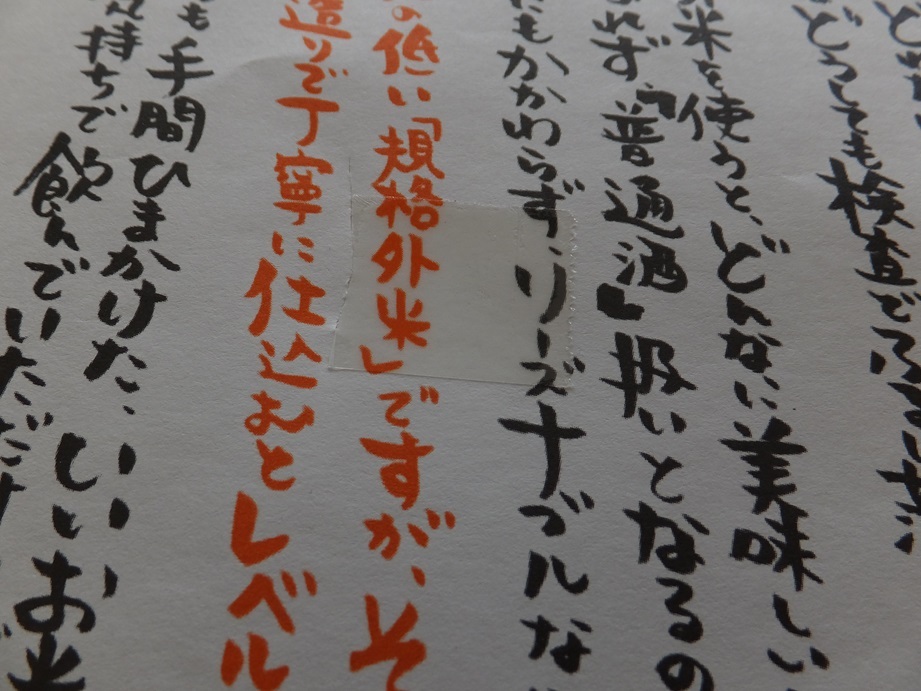 どうしても検査で
米を使うと、どんなに美味しい
れず、「普通酒」扱いとなるの
にもかかわらず、リーズナブルな
の低い「規格外米」ですが、そ
造りで丁寧に仕込むとレベル
も手間ひまかけた、いいお米
ん持ちで飲んでいただけ